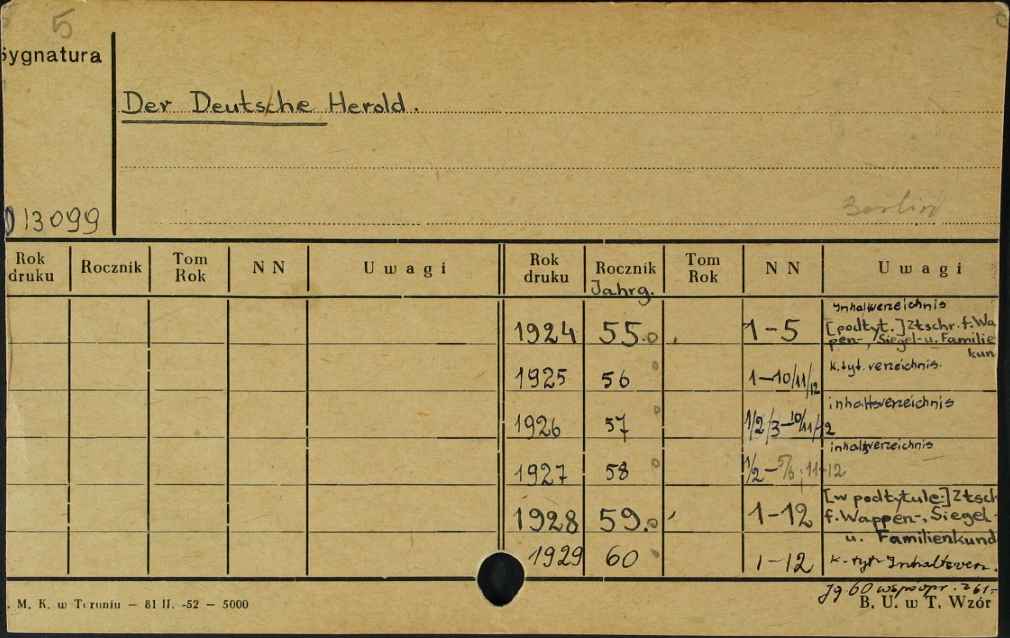 5
Sygnatura
Der Deutsche Herold.
Berlin
13099
Rok druku Rocznik Tom Rok NN Uwagi Rok druku Rocznik Tom Rok NN Uwagi
Jahrg.
Inhaltverzeichnis
1924 55. 1-5 [podtyt.] Ztschr. f. Wa
pen-, Siegel- u. Familie
kun
1925 56 1-10/11/12 k. tyt. verzeichnis.
1926 57 1/2/3-10/11/12 inhaltsverzeichnis
1927 58 1/2-5/6; 11-12 inhaltsverzeichnis
1928 59. 1-12 [w podtytule:] Ztsch
f. Wappen-, Siegel-
u. Familienkund
1929 60 1-12 k. tyt. Inhaltsverz.
Jg 60 wspropr. z 61
. M. K. w Toruniu — 81 II. -52 — 5000 B. U. w T. Wzór